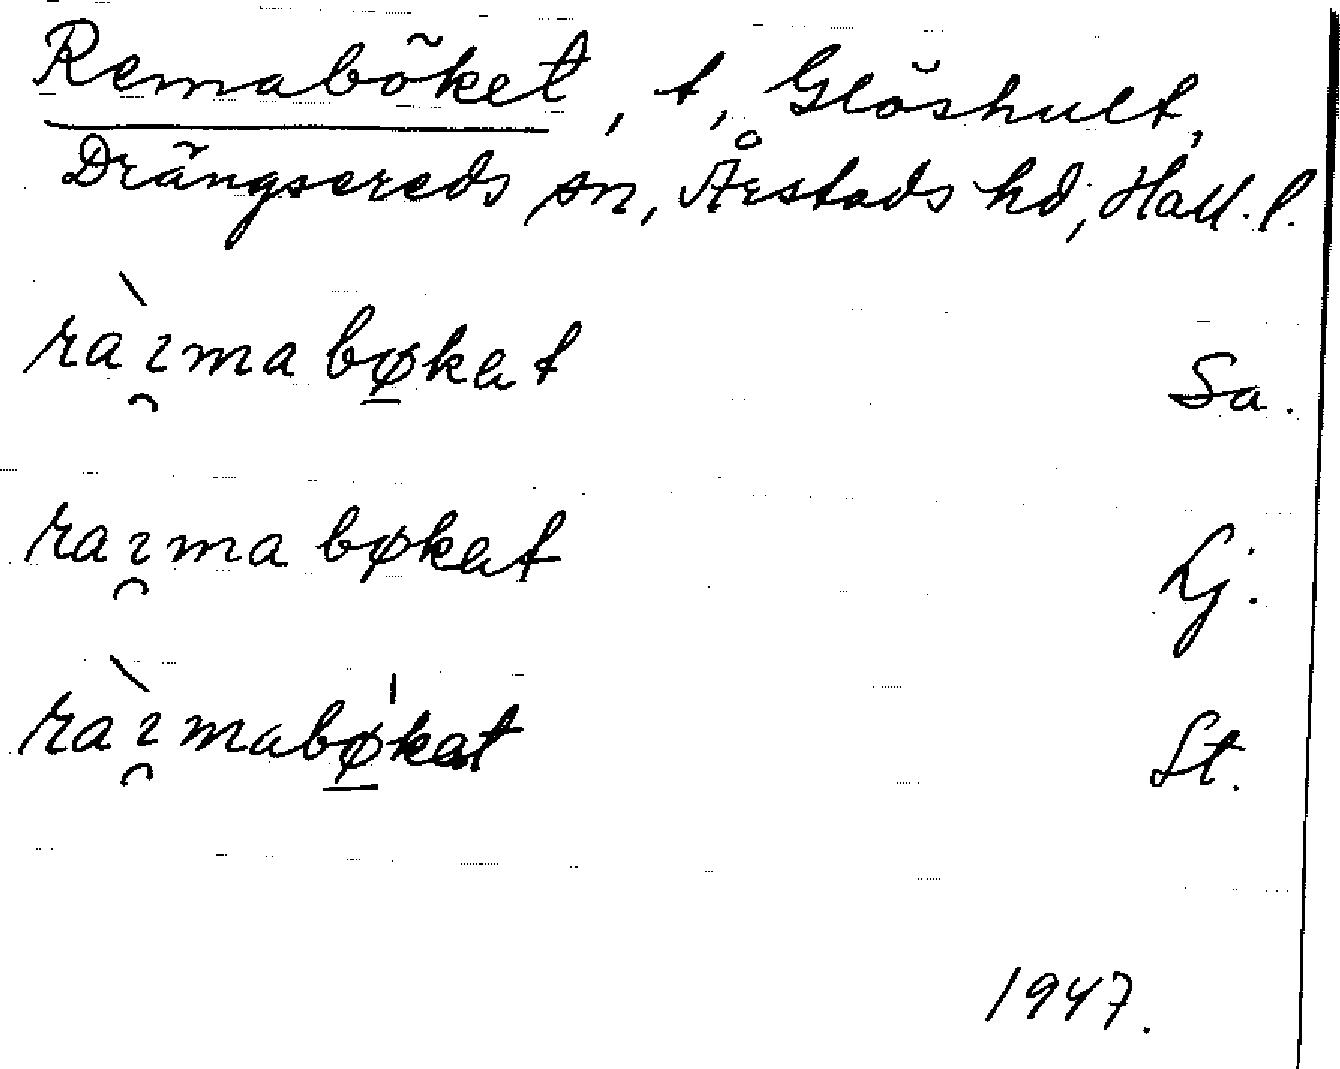 Remaböket, t, Glöshult,
Drängsereds sn, Årstads hd, Hall. l.
ràı̯mabø̱kat Sa.
raı̯mabøkat Lj.
ràı̯mabø̱'kat St.
1947.